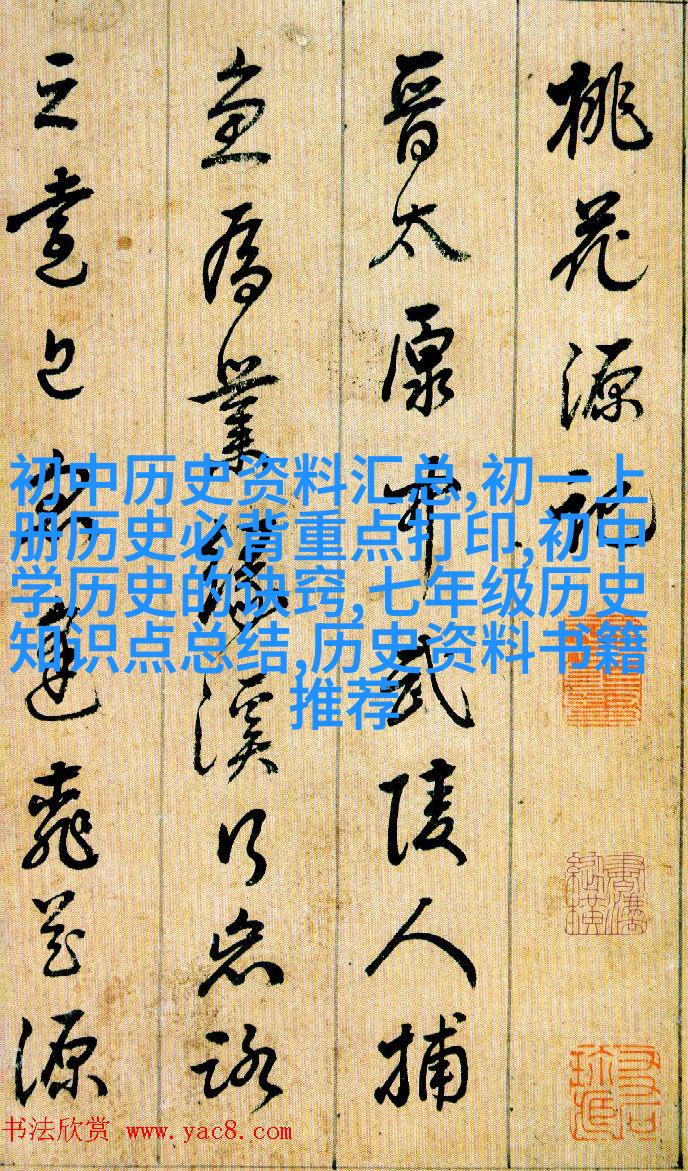 桃花源記
晉太原中武陵人捕
魚為業緣溪行忘路
之遠近忽逢桃花源
初中历史资料汇总,初一上
册历史必背重点打印,初中
学历史的诀窍,七年级历史
知识点总结,历史资料书籍
推荐
书法欣赏 www.yac8.com